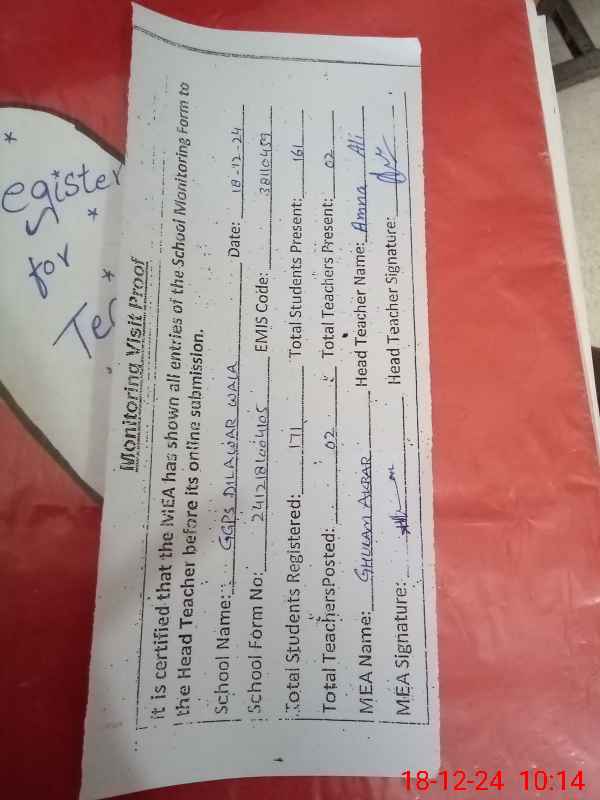 Monitoring Visit Proof
it is certified that the MEA has shown all entries of the School Monitoring Form to
the Head Teacher before its online submission.
School Name: GGPS DILAWAR WALA Date: 18-12-24
School Form No: 241218100405 EMIS Code: 38110459
Total Students Registered: 171 Total Students Present: 161
Total TeachersPosted: 02 Total Teachers Present: 02
MEA Name: GHULAM AKBAR Head Teacher Name: Amna Ali
MEA Signature: Head Teacher Signature:
egister
for
Te
18-12-24 10:14